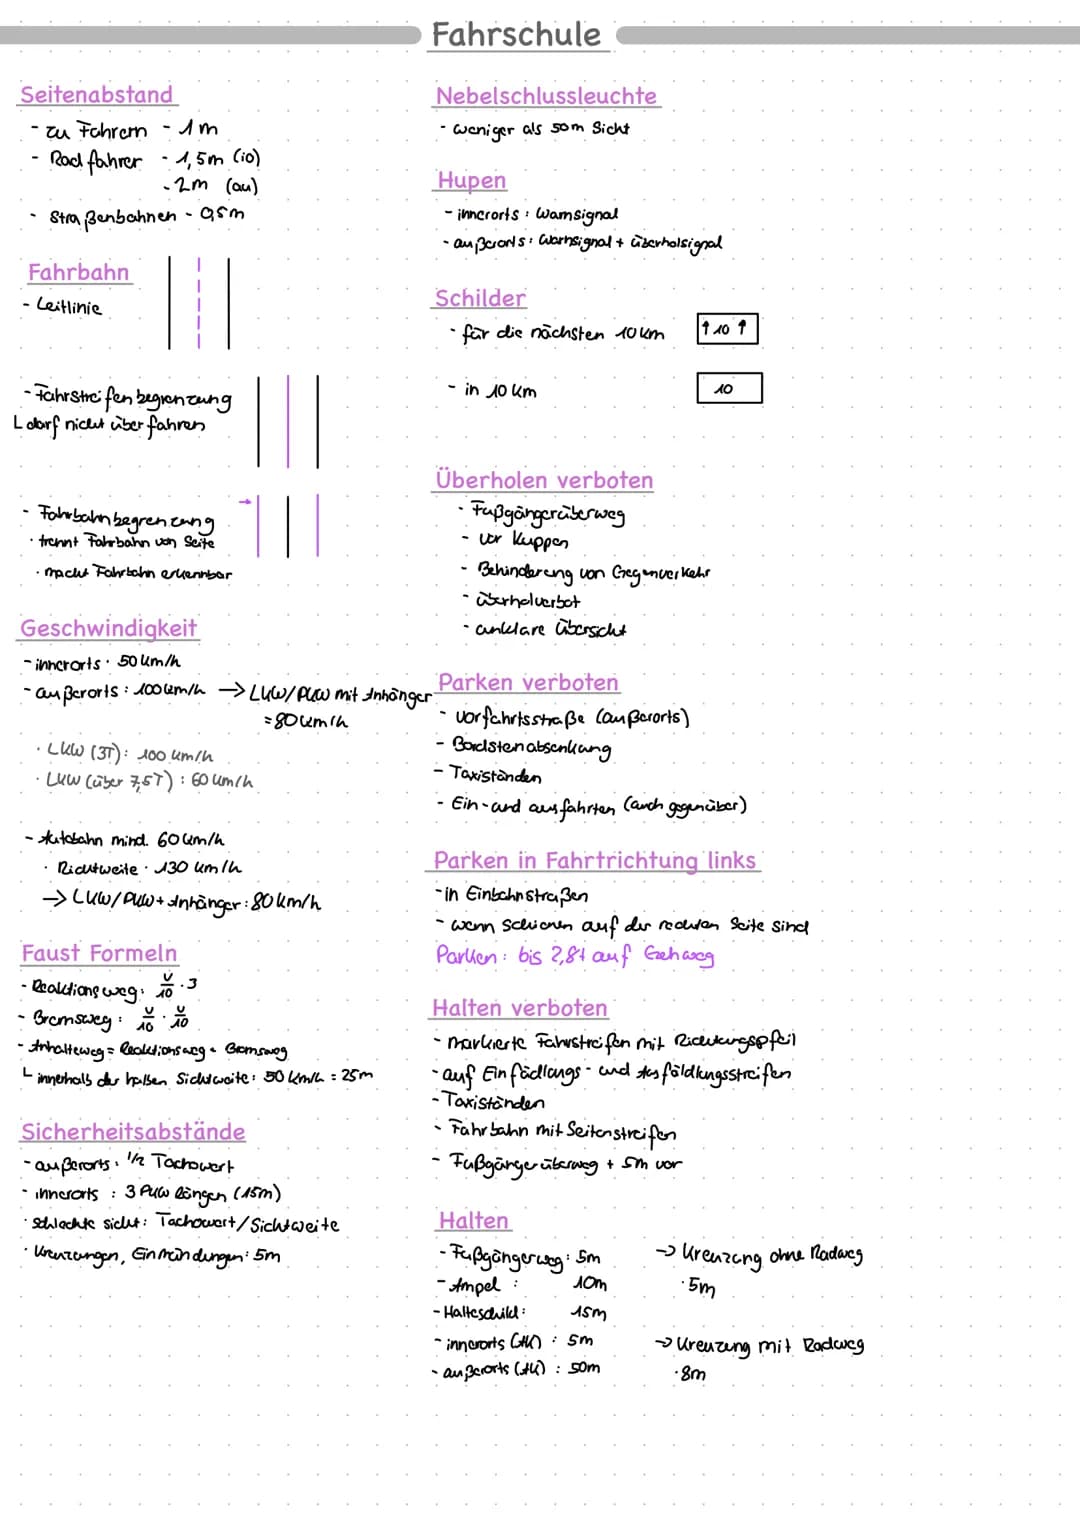 Fahrschule
Seitenabstand
- zu Fahrern - 1m
- Radfahrer - 1,5m (io)
- 2m (au)
- Straßenbahnen - 0,5m
Fahrbahn
- Leitlinie
- Fahrstreifenbegrenzung
L darf nicht überfahren
- Fahrbahnbegrenzung
· trennt Fahrbahn von Seite
· macht Fahrbahn erkennbar
Geschwindigkeit
- innerorts: 50 km/h
- außerorts: 100 km/h → LKW/PKW mit Anhänger
= 80 km/h
· LKW (3T): 100 km/h
· LKW (über 7,5T): 60 km/h
- Autobahn mind. 60 km/h
· Richtweite · 130 km/h
→ LKW/PKW + Anhänger: 80 km/h
Faust Formeln
- Reaktionsweg: v/10 · 3
- Bremsweg: v/10 · v/10
- Anhalteweg = Reaktionsweg + Bremsweg
L innerhalb der halben Sichtweite: 50 km/h = 25m
Sicherheitsabstände
- außerorts: 1/2 Tachowert
- innerorts: 3 PKW längen (15m)
· schlechte sicht: Tachowert/Sichtweite
· Kreuzungen, Einmündungen: 5m
Nebelschlussleuchte
- weniger als 50m Sicht
Hupen
- innerorts: Warnsignal
- außerorts: Warnsignal + überholsignal
Schilder
- für die nächsten 10 km ↑ 10 ↑
- in 10 km 10
Überholen verboten
- Fußgängerüberweg
- vor Kuppen
- Behinderung von Gegenverkehr
- überholverbot
- unklare Übersicht
Parken verboten
- Vorfahrtsstraße (außerorts)
- Bordsteinabsenkung
- Taxiständen
- Ein- und ausfahrten (auch gegenüber)
Parken in Fahrtrichtung links
- in Einbahnstraßen
- wenn Schienen auf der rechten Seite sind
Parken: bis 2,8t auf Gehweg
Halten verboten
- markierte Fahrstreifen mit Richtungspfeil
- auf Einfädlungs- und Ausfäldlungsstreifen
- Taxiständen
- Fahrbahn mit Seitenstreifen
- Fußgängerüberweg + 5m vor
Halten
- Fußgängerweg: 5m
- Ampel: 10m
- Halteschild: 15m
- innerorts (AK): 5m
- außerorts (AK): 50m
→ Kreuzung ohne Radweg
· 5m
→ Kreuzung mit Radweg
· 8m